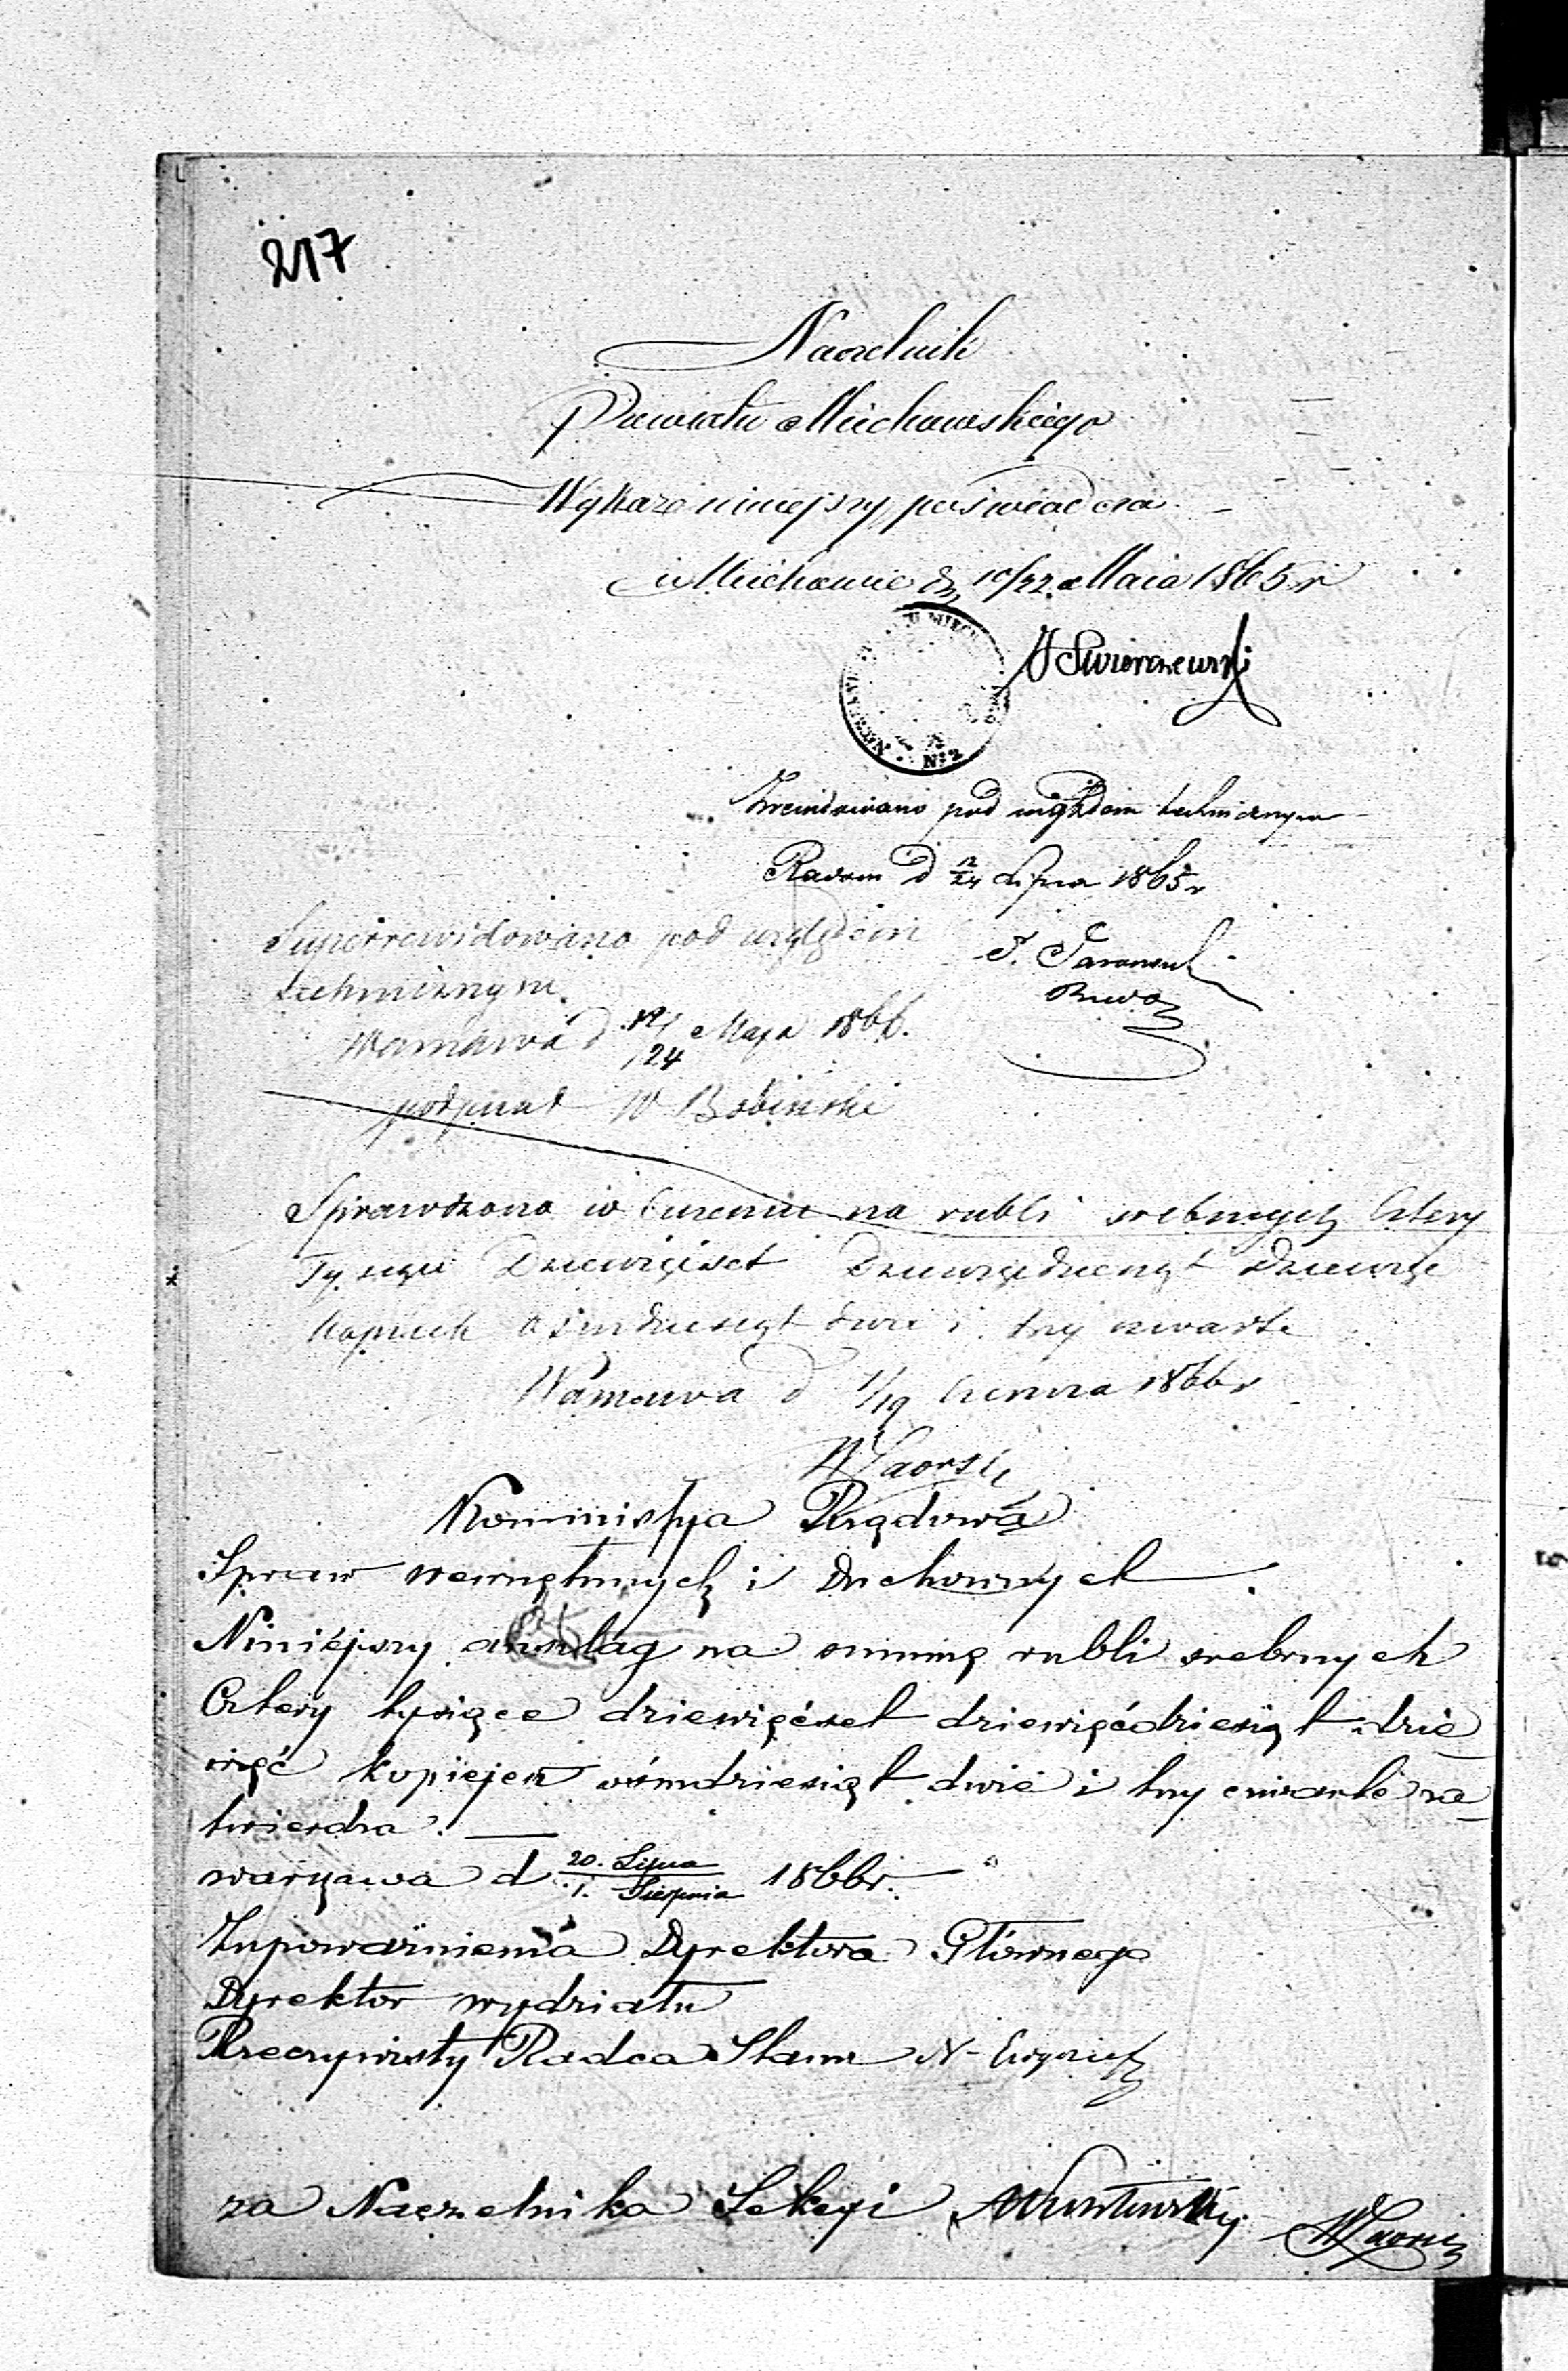 217
Naczelnik
Powiatu Miechowskiego
Wykaz niniejszy poświadcza
w Miechowie d. 10/22 Maia 1865 r
Nº 2
Zrewidowano pod względem technicznym
Radom d 12/24 Lipca 1865 r
Superrewidowano pod względem
technicznym
Warszawa d 12/24 Maja 1866.
podpisał W Bobiński
Sprawdzono w summie na rubli srebrnych Cztery
Tysiące Dziewięćset Dziewięćdziesiąt Dziewięć
kopiiek ośmdziesiąt dwie i trzy czwarte
Warszawa d 1/19 Czerwca 1866 r
Kommissya Rządowa
Spraw wewnętrznych i Duchownych
Niniejszy anszlag na summę rubli srebrnych
Cztery tysiące dziewięćset dziewięćdziesiąt dzie
więć kopiejek ośmdziesiąt dwie i trzy czwarte za
twierdza.
warszawa d 20. Lipca / 1. Sierpnia 1866 r.
Zupoważnienia Dyrektora Głównego
Dyrektor wydziału
Rzeczywisty Radca Stanu
za Naczelnika Sekcyi